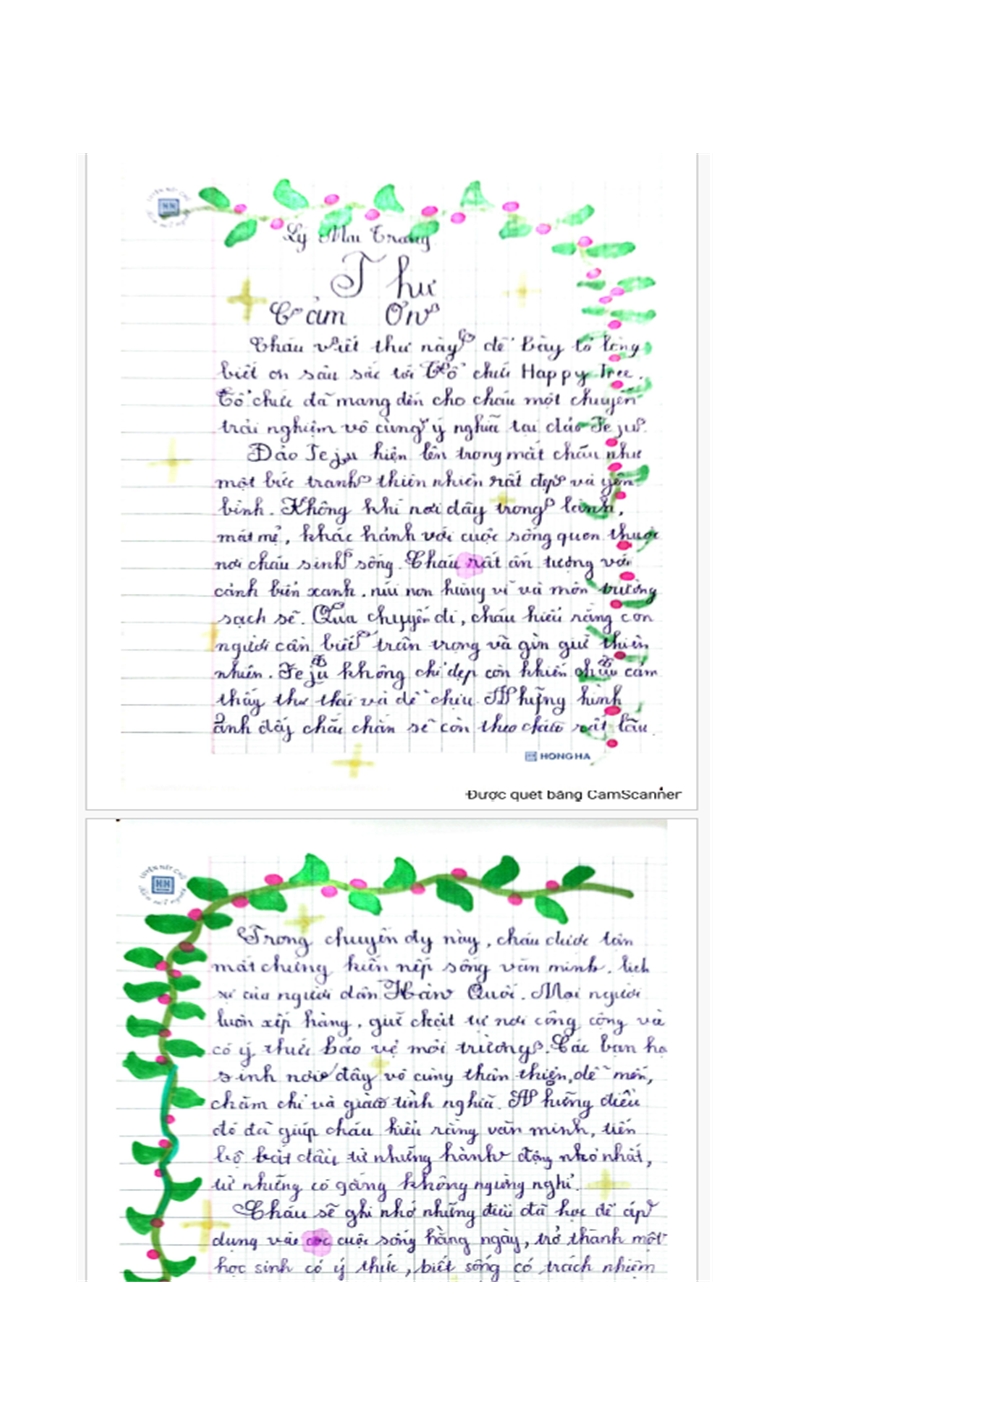 Lý Mai Trang
Thư
Cảm Ơn
Cháu viết thư này để bày tỏ lòng
biết ơn sâu sắc tới tổ chức Happy Tree.
Tổ chức đã mang đến cho cháu một chuyến
trải nghiệm vô cùng ý nghĩa tại đảo Jeju.
Đảo Jeju hiện lên trong mắt cháu như
một bức tranh thiên nhiên rất đẹp và yên
bình. Không khí nơi đây trong lành,
mát mẻ, khác hánh với cuộc sống quen thuộc
nơi cháu sinh sống. Cháu rất ấn tượng với
cảnh biển xanh, núi non hùng vĩ và môn trường
sạch sẽ. Qua chuyến đi, cháu hiểu rằng con
người cần biết trân trọng và gìn giữ thiên
nhiên. Jeju không chỉ đẹp còn khiến cháu cảm
thấy thư thái và dễ chịu. Những hình
ảnh đấy chắc chắn sẽ còn theo cháu rất lâu.
HONG HA
Được quét bằng CamScanner
Trong chuyến đy này, cháu được tận
mắt chứng kiến nếp sống văn minh, lịch
sự của người dân Hàn Quốc. Mọi người
luôn xếp hàng, giữ trật tự nơi công cộng và
có ý thức bảo vệ môi trường. Các bạn họ
sinh nơi đây vô cùng thân thiện, dễ mến,
chăm chỉ và giàu tình nghĩa. Những điều
đó đã giúp cháu hiểu rằng văn minh, tiến
bộ bắt đầu từ những hành động nhỏ nhất,
từ những cố gắng không ngừng nghỉ.
Cháu sẽ ghi nhớ những điều đã học để áp
dụng vào cuộc sống hằng ngày, trở thành một
học sinh có ý thức, biết sống có trách nhiệm